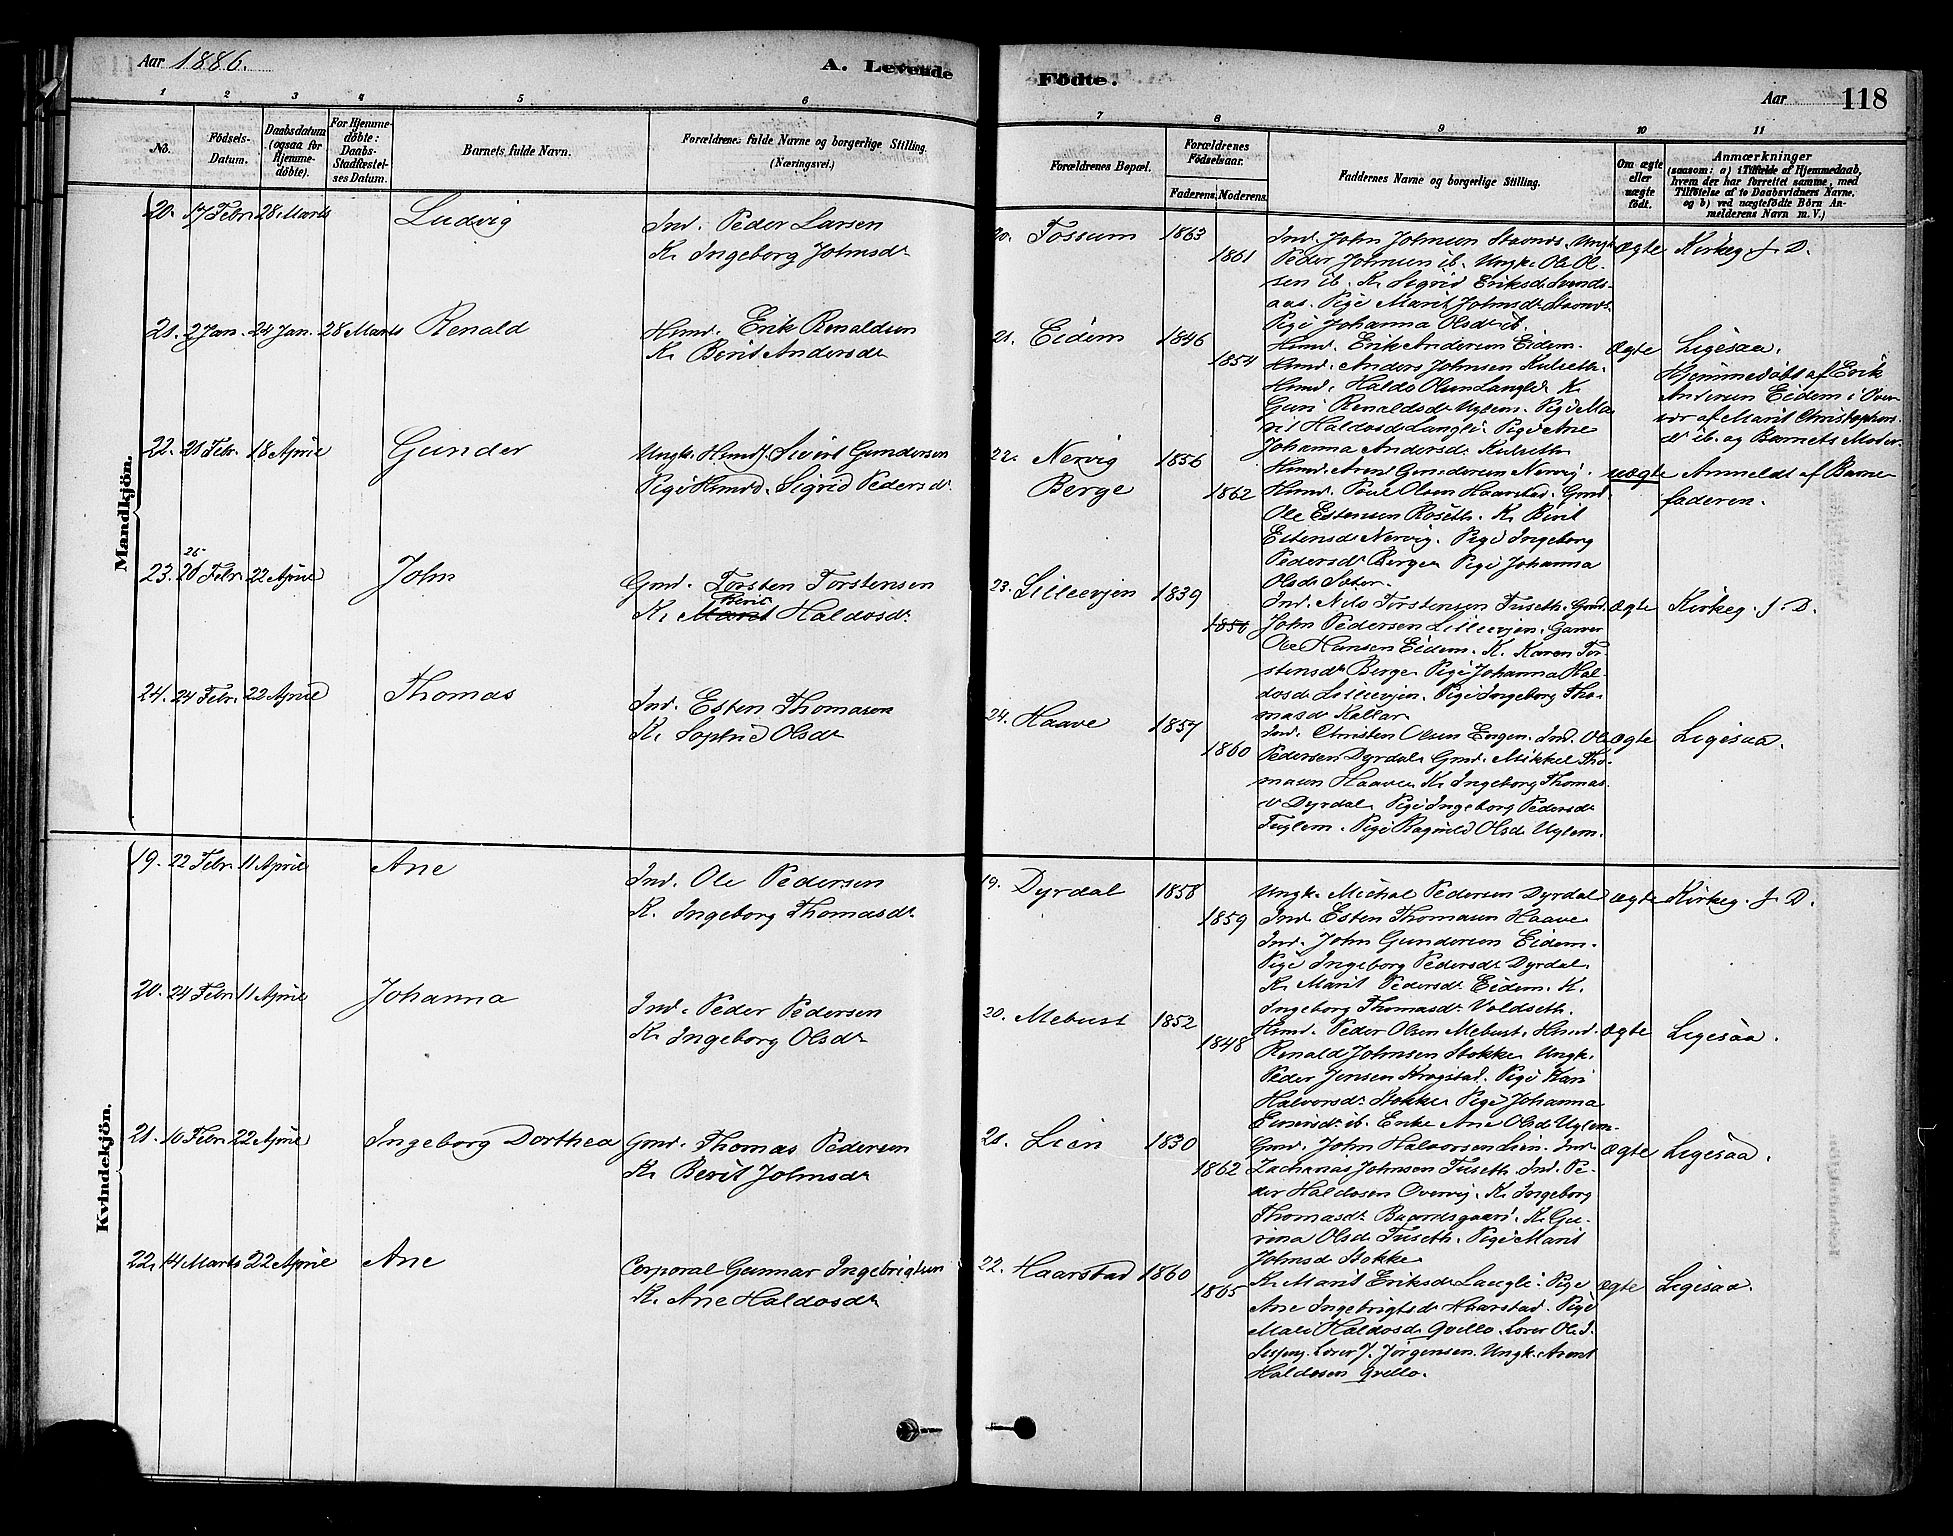 Aar 1886.
A. Levende Fødte.
Aar 118
1 2 3 4 5 6 7 8 9 10 11
No.
Födsels-
Datum.
Daabsdatum
(ogsaa for
Hjemme-
döbte).
For Hjemme-
döbte:
Daabs-
Stadfæstel-
ses Datum.
Barnets fulde Navn.
Forældrenes fulde Navne og borgerlige Stilling.
(Næringsvei.)
Forældrenes Bopæl.
Forældrenes
Födselsaar.
Faderens. Moderens.
Faddernes Navne og borgerlige Stilling.
Om ægte
eller
uægte
födt.
Anmærkninger
(saasom: a) i Tilfælde af Hjemmedaab,
hvem der har forrettet samme, med
Tilföielse af to Daabsvidners Navne,
og b) ved uægtefödte Börn An-
melderens Navn m. V.)
Mandkjön.
20. 17 Febr. 28 Marts
Ludvig
Ind. Peder Larsen
K. Ingeborg Johnsdr
20. Fossum 1863
1861
Ind. John Johnsen Stavnds. Ungk.
Peder Johnsen ib. Ungk. Ole Ol-
sen ib. K. Sigrid Eriksd. Svends-
aas. Pige Marit Johnsdr Stavnds.
Pige Johanna Olsdr ib.
ægte
Kirkeg. f. D.
21. 2 Jan. 24 Jan. 28 Marts
Renald
Hmd. Erik Renaldsen
K. Berit Andersdr
21. Eidem 1846
1854
Hmd. Erik Andersen Eidem.
Hmd. Anders Johnsen Kulseth.
Hmd. Haldo Olsen Langli. K.
Guri Renaldsdr Uglem. Pige Ma-
rit Haldosd. Langli. Pige Ane
Johanna Andersdr Kulseth
ægte
Ligesaa.
Hjemmedöbt af Erik
Andersen Eidem i Overvær
af Marit Christophers-
dr ib. og Barnets Moder.
22. 21 Febr. 18 Aprile
Gunder
Ungk. Hmdf. Sivert Gundersen
Pige Hmdd. Sigrid Pedersdr
22. Nervig
Berge
1856
1862
Hmd. Arnt Gundersen Nervig.
Hmd. Poul Olsen Haarstad. Gmd.
Ole Estensen Roseth. K. Berit
Estensdr Nervig. Pige Ingeborg
Pedersdr Berge. Pige Johanna
Olsdr Sæter.
uægte
Anmeldt af Barne-
faderen.
23. 26 26 Febr. 22 Aprile
John
Gmd. Torsten Torstensen
K. Marit Berit Haldosdr
23. Lilleevjen 1839
1850
Ind. Nils Torstensen Tuseth. Gmd.
John Pedersen Lilleevjen. Garver
Ole Hansen Eidem. K. Karen Tor-
stensdr Berge. Pige Johanna Hal-
dosdr Lilleevjen. Pige Ingeborg Tho-
masdr Kallar
ægte
Kirkeg. f. D.
24. 24 Febr. 22 Aprile
Thomas
Ind. Esten Thomasen
K. Sophie Olsdr
24. Haave 1857
1860
Ind. Christen Olsen Engen. Ind. Ole
Pedersen Dyrdal. Gmd. Mikkel Tho-
masen Haave. K. Ingeborg Thomas-
dr Dyrdal. Pige Ingeborg Pedersdr
Fuglem. Pige Ragnild Olsd. Uglem.
ægte
Ligesaa.
Kvindekjön.
19. 22 Febr. 11 Aprile
Ane
Ind. Ole Pedersen
K. Ingeborg Thomasdr
19. Dyrdal 1858
1859
Ungk. Michal Pedersen Dyrdal
Ind. Esten Thomasen Haave
Ind. John Gundersen Eidem.
Pige Ingeborg Pedersdr Dyrdal.
K. Marit Pedersdr Eidem. K.
Ingeborg Thomasdr Voldseth.
ægte
Kirkeg. f. D.
20. 24 Febr. 11 Aprile
Johanna
Ind. Peder Pedersen
K. Ingeborg Olsdr
20. Mebust 1852
1848
Hmd. Peder Olsen Mebust. Hmd.
Renald Johnsen Stokke. Ungk.
Peder Jensen Krogstad. Pige Kari
Halvorsdr Stokke. Pige Johanna
Einersdr ib. Enke Ane Olsd. Uglem.
ægte
Ligesaa.
21. 16 Febr. 22 Aprile
Ingeborg Dorthea
Gmd. Thomas Pedersen
K. Berit Johnsdr
21. Lien 1830
1862
Gmd. John Halvorsen Lien. Ind.
Zacharias Johnsen Tuseth. Ind. Pe-
der Haldosen Overvig. K. Ingeborg
Thomasdr Baardsgaard. K. Gu-
rina Olsd. Tuseth. Pige Marit
Johnsd. Stokke
ægte
Ligesaa.
22. 14 Marts 22 Aprile
Ane
Corporal Gunnar Ingebrigtsen
K. Ane Haldosdr
22. Haarstad 1860
1865
K. Marit Eriksdr Langli. Pige
Ane Ingebrigtsdr Haarstad. Pige
Mali Haldosd. Qvello. Lærer Ole
Lærer J. Jørgensen. Ungk. Arnt
Haldosen Qvello.
ægte
Ligesaa.